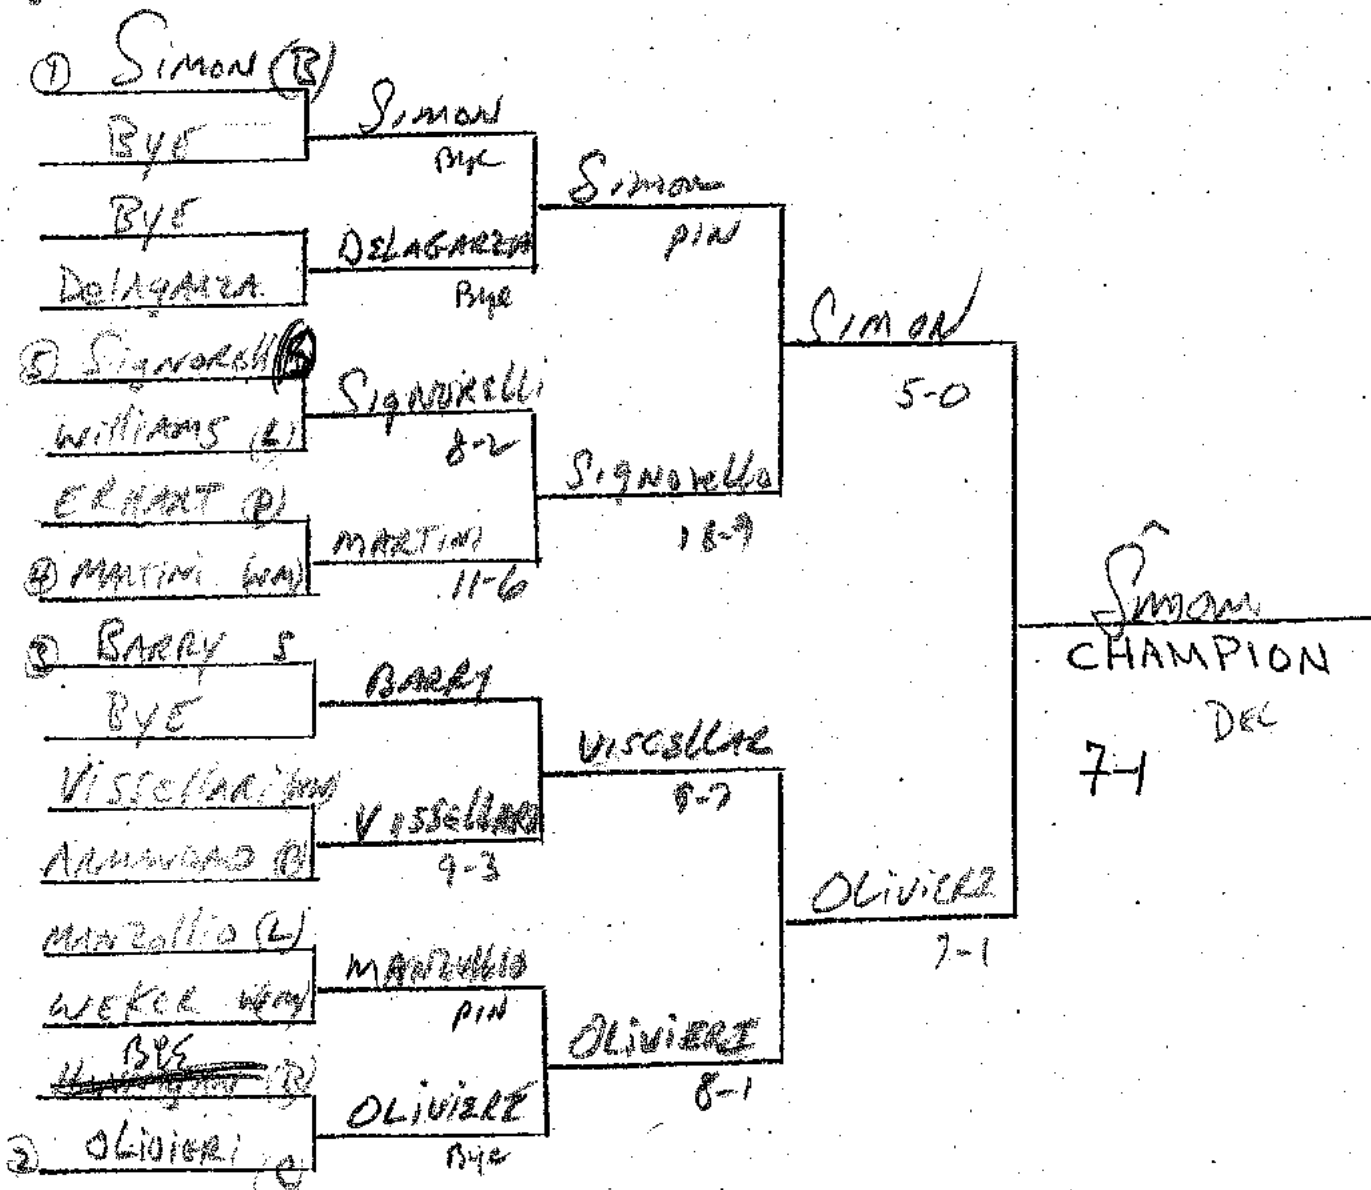 ① SIMON (B)
BYE
BYE
DelAgARZA
⑤ SignoRelli
Williams (L)
ERHART (P)
④ MARTINI (WM)
③ BARRY S
BYE
VISSellARi
(B)
MANZollio (L)
WEKER
BYE
② OLiViERi
SIMON
Bye
DELAGARZA
Bye
SigNORELLi
8-2
MARTINI
11-6
BARRY
VISSellARI
9-3
MANZULLIO
PIN
OLIVIERI
Bye
Simon
PIN
SigNOrello
18-9
VISCELLAR
OLiViERI
8-1
SIMON
5-0
OLiViERI
7-1
Simon
CHAMPION
DEC
7-1